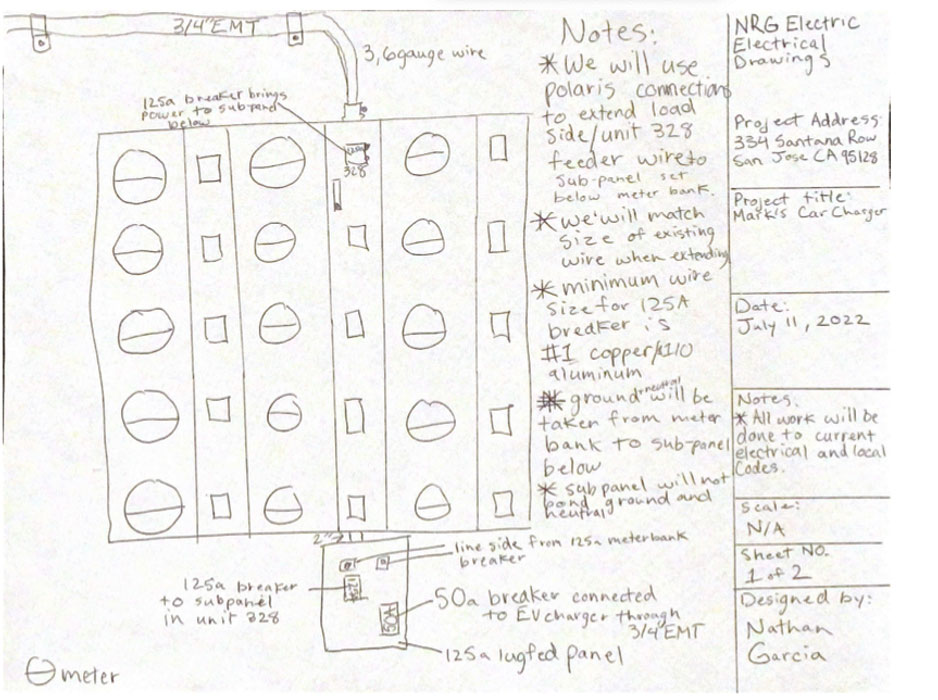 3/4" EMT
3, 6 gauge wire
125a breaker brings
power to subpanel
below
328
2"
line side from 125a meterbank
breaker
125a breaker
to subpanel
in unit 328
125A
50A
50a breaker connected
to EV charger through
3/4 EMT
125a lugfed panel
meter
Notes:
* We will use
polaris connections
to extend load
side/unit 328
feeder wire to
sub-panel set
below meter bank.
* we will match
size of existing
wire when extending
* minimum wire
size for 125A
breaker is
#1 copper/#1/0
aluminum
* ground + neutral will be
taken from meter
bank to sub-panel
below
* subpanel will not
bond ground and
neutral
NRG Electric
Electrical
Drawings
Project Address:
334 Santana Row
San Jose CA 95128
Project title:
Mark's Car Charger
Date:
July 11, 2022
Notes.
* All work will be
done to current
electrical and local
Codes.
Scale:
N/A
Sheet NO.
1 of 2
Designed by:
Nathan
Garcia